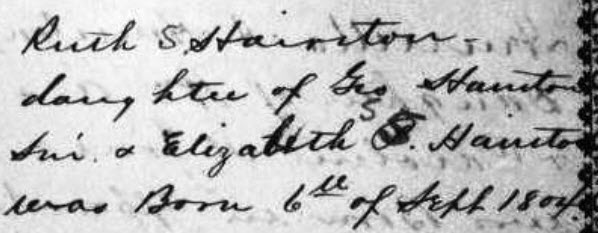 Ruth S. Hairston -
daughter of Geo Hairston
Snr. & Elizabeth S. Hairston
was Born 6th of Sept 1804.